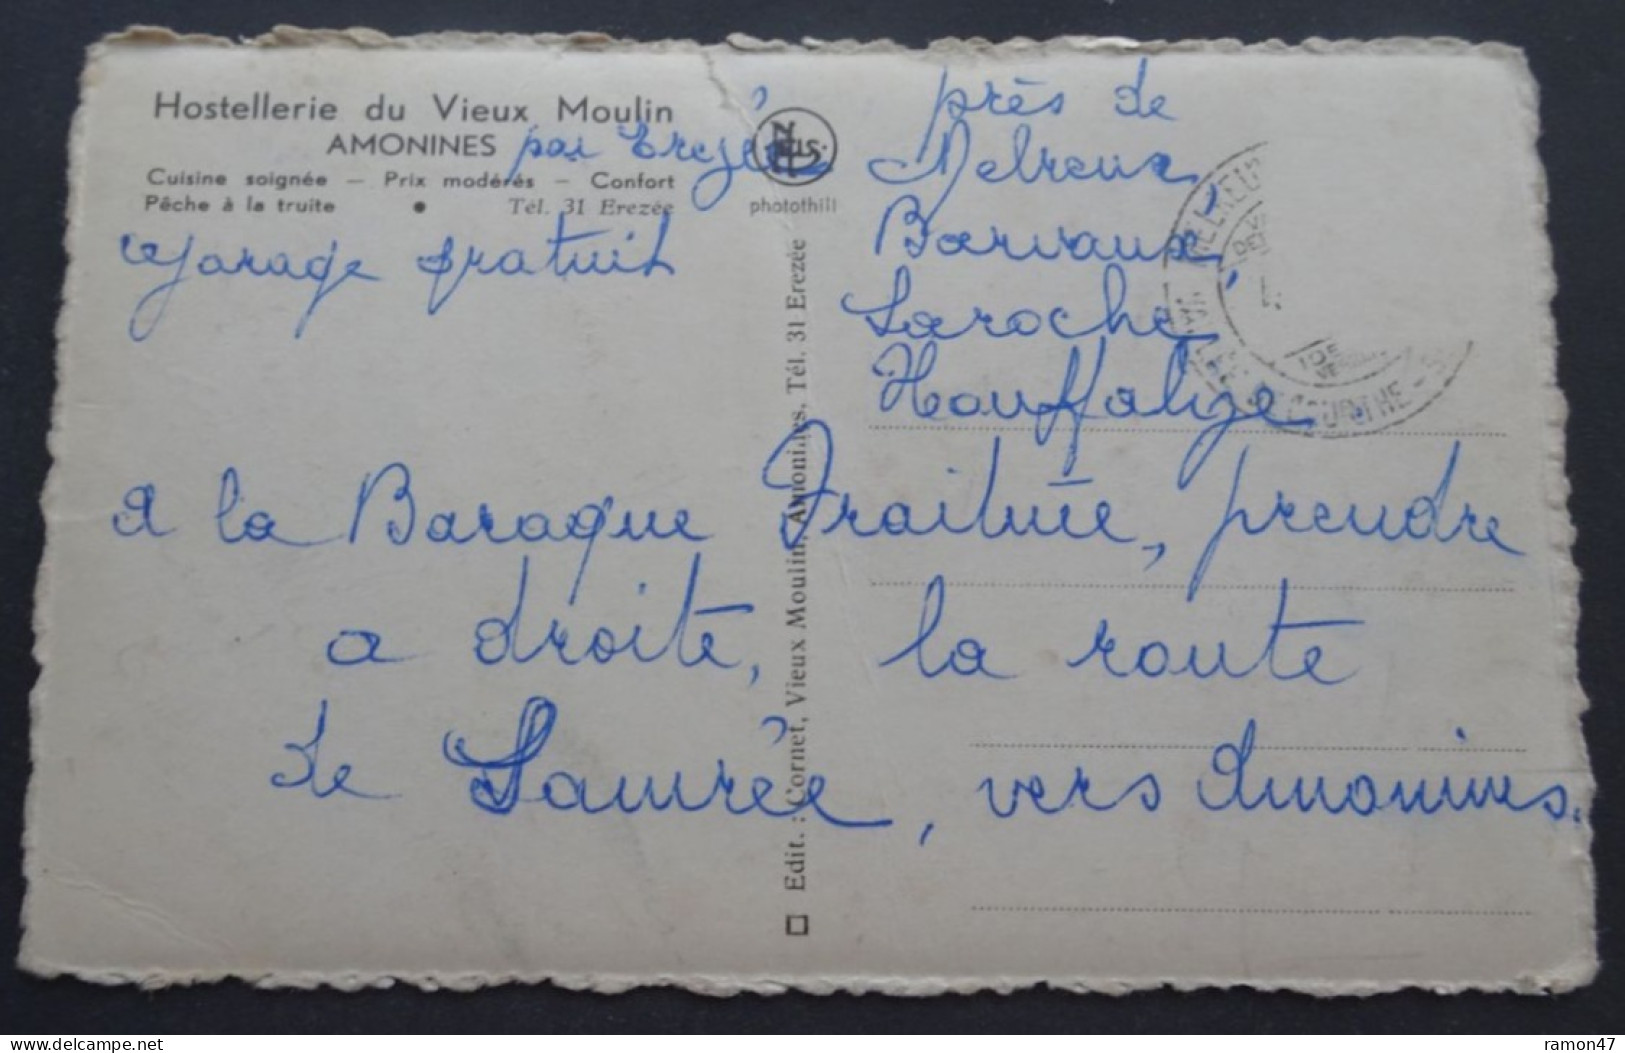 Hostellerie du Vieux Moulin
AMONINES par Erezée
Cuisine soignée – Prix modérés – Confort
Pêche à la truite • Tél. 31 Erezée
garage gratuit
NELS
photothill
près de
Melreux,
Barvaux,
Laroche,
Houffalize
a la Baraque Fraiture, prendre
a droite, la route
de Samrée, vers Amonines.
Edit. : Cornet, Vieux Moulin, Amonines, Tél. 31 Erezée
Delcampe.net
ramon47